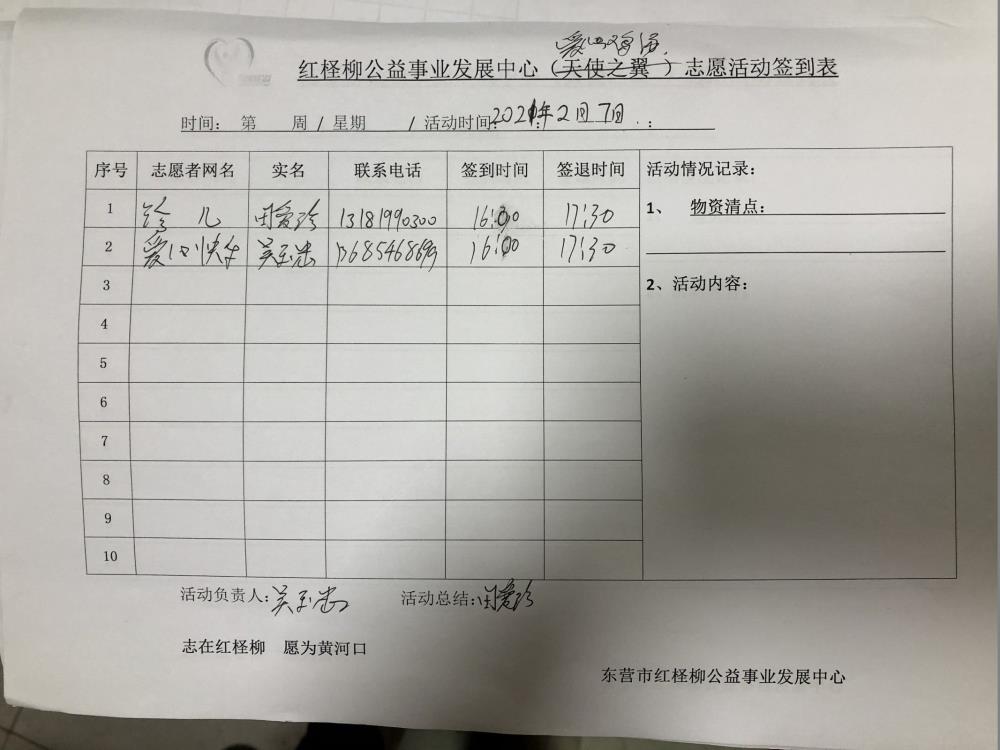 红柽柳公益事业发展中心（天使之翼 ）志愿活动签到表
时间： 第 周 / 星期 / 活动时间： 2021年2月7日 ：
序号 志愿者网名 实名 联系电话 签到时间 签退时间 活动情况记录：
1 玲 儿 田爱珍 13181990300 16:00 17:30 1、 物资清点：
2 16:00 17:30
3 2、活动内容：
4
5
6
7
8
9
10
活动负责人： 活动总结：田爱珍
志在红柽柳 愿为黄河口
东营市红柽柳公益事业发展中心